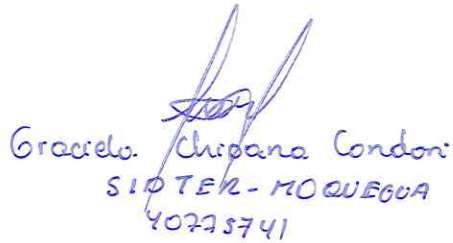 Graciela. Chipana Condori
SIDTER - MOQUEGUA
40775741